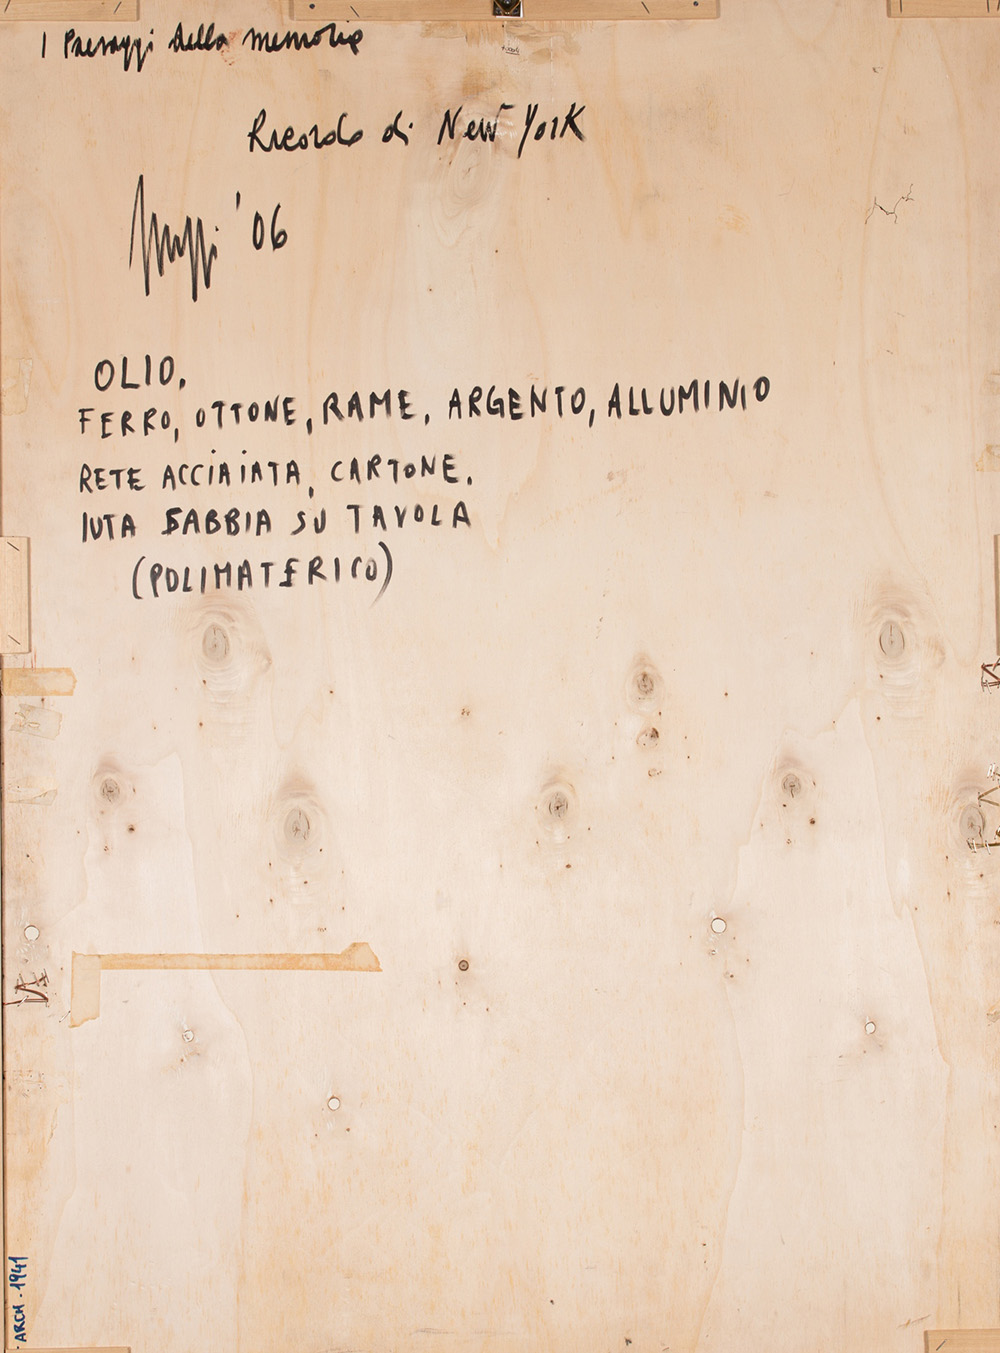 I Paesaggi della memoria
Ricordo di New York
'06
OLIO,
FERRO, OTTONE, RAME, ARGENTO, ALLUMINIO
RETE ACCIAIATA, CARTONE,
IUTA SABBIA SU TAVOLA
(POLIMATERICO)
ARCH. 1941